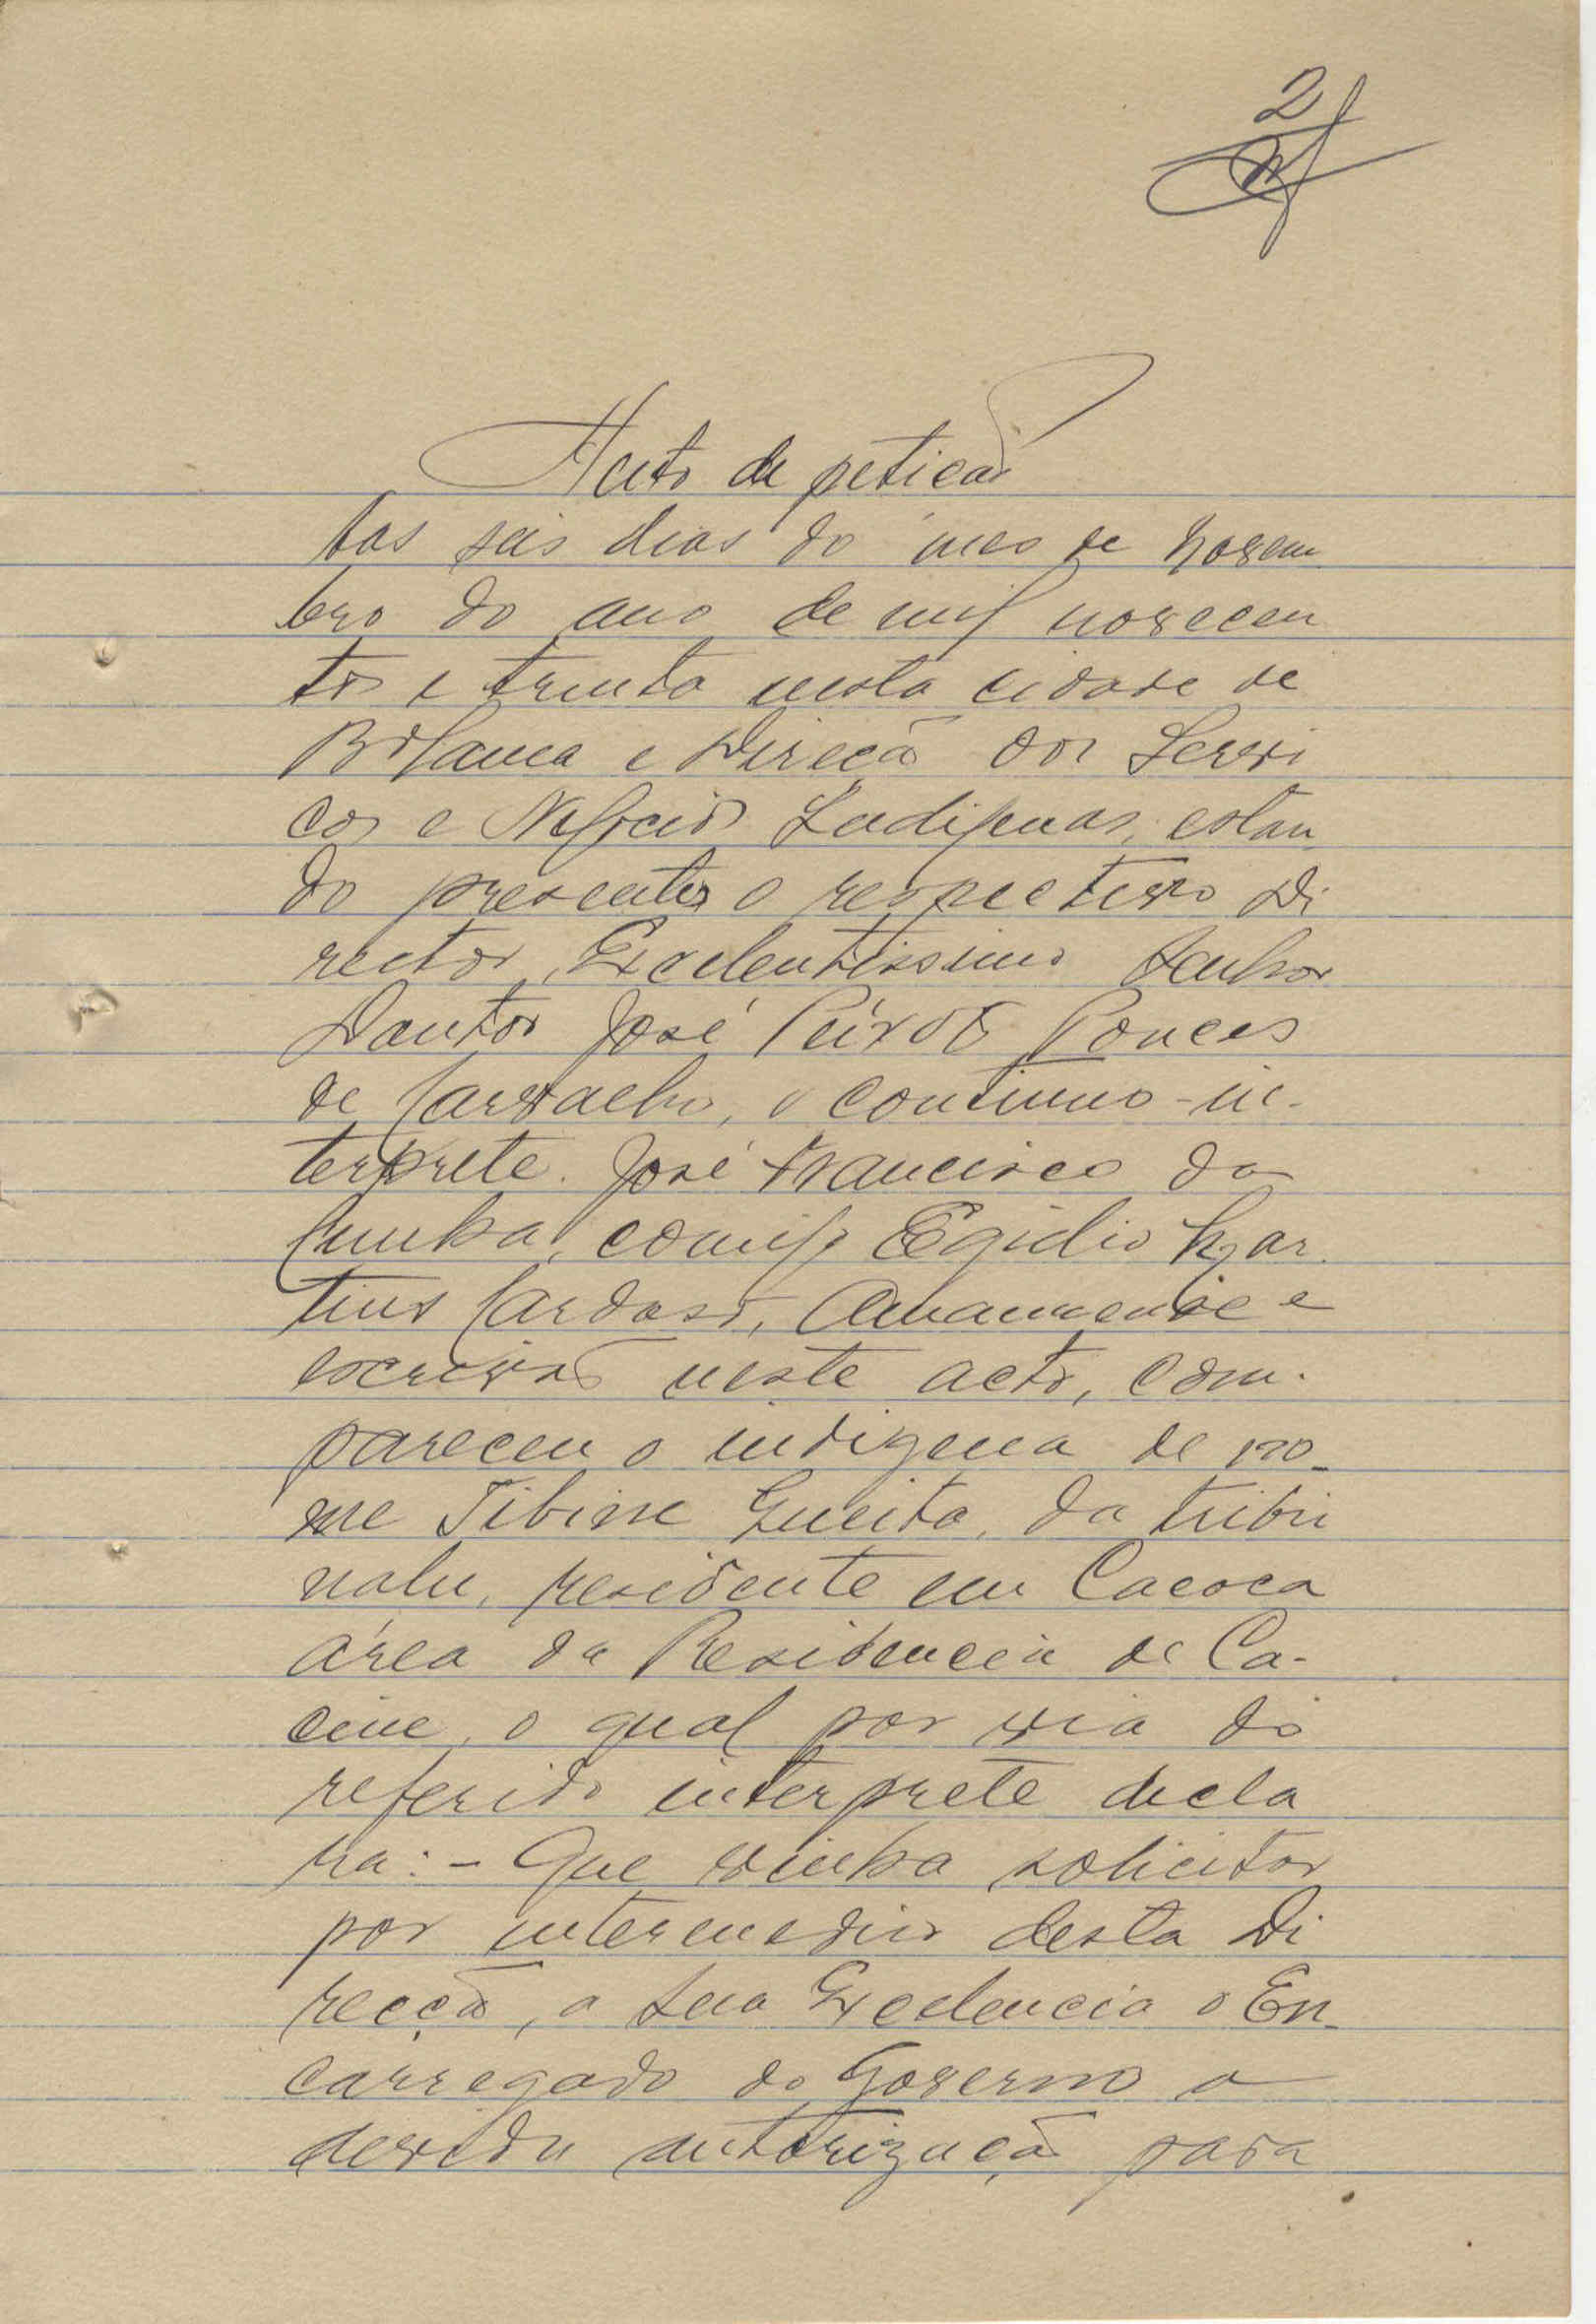 2
Auto de petição
Aos seis dias do mes de Novem
bro do ano de mil novecen
tos e trinta nesta cidade de
Bolama e Direcão dos Servi
cos e Negocios Indigenas, estan
do presentes o respectivo Di
rector, Excelentissimo Senhor
Doutor José Peixoto Ponces
de Carvalho, o continuo-in-
terprete. José Francisco da
Cunha, comigo Egidio Mar
tins Cardoso, Amanuense e
escrivão neste acto, com-
pareceu o indigena de no-
me Jibine Gueita, da tribu
nalu, residente em Cacoca
área da Residencia de Ca-
cine, o qual por via do
referido interprete decla
ra: - Que vinha solicitar
por intermedio desta Di
recção, a Sua Excelencia o En-
carregado do Governo a
devida autorização para